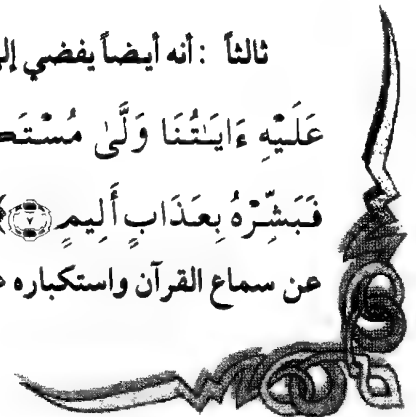 ثالثاً : أنه أيضاً يفضي إل
عَلَيْهِ ءَايَـٰتُنَا وَلَّىٰ مُسْتَك
فَبَشِّرْهُ بِعَذَابٍ أَلِيمٍ ٧
عن سماع القرآن واستكباره ع